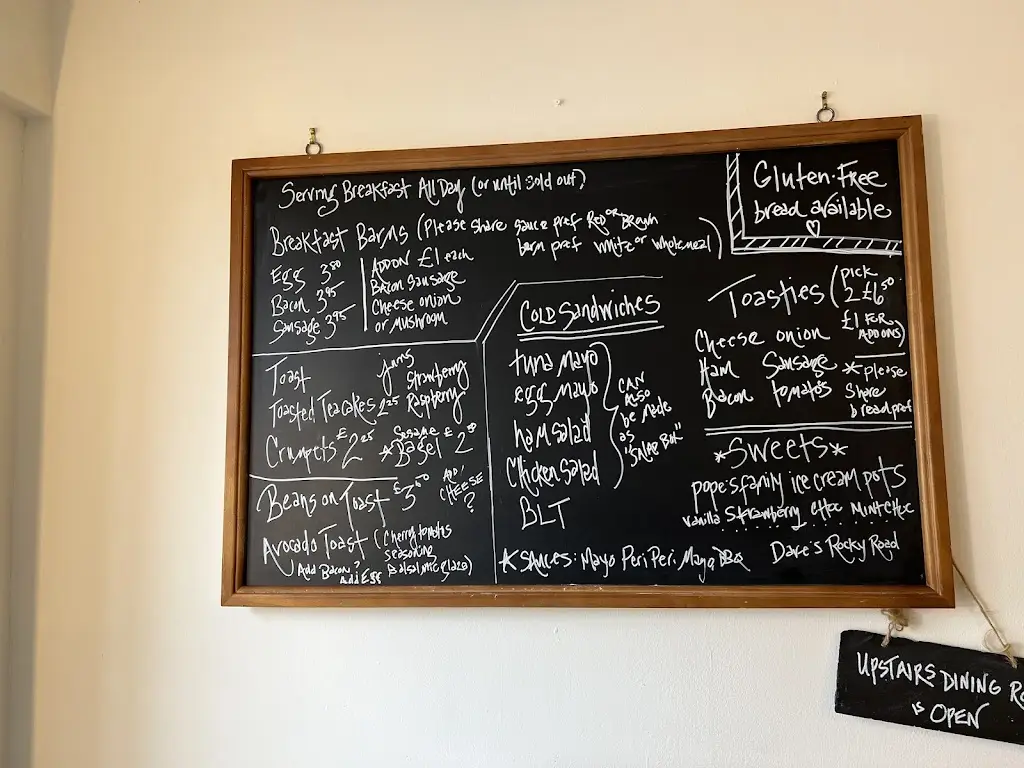 Serving Breakfast All Day (or until sold out)
Breakfast Barms (Please share sauce pref Red or Brown
barm pref white or wholemeal)
Egg 3.50
Bacon 3.95
Sausage 3.95
ADD ON £1 each
Bacon Sausage
Cheese onion
or Mushroom
Toast
jams
Strawberry
Raspberry
Toasted Teacakes 2.25
Crumpets £2.25
*Sesame Bagel £2
Beans on Toast £3.50
ADD CHEESE?
Avocado Toast (Cherry tomatoes
seasoning
Balsamic glaze)
Add Bacon?
Add Egg
COLD SandWicHES
tuna Mayo
egg Mayo
ham Salad
Chicken Salad
BLT
CAN
Also
be Made
as
"Salad Box"
*SAUCES: Mayo Peri Peri. Mayo BBQ
Gluten-Free
bread available
Toasties (pick
2 £6.50
£1 FOR
ADD ONS)
Cheese onion
Ham Sausage
Bacon tomatoes
*please
Share
bread pref
*SWEETS*
pope's family ice cream pots
vanilla Strawberry choc Mint choc
Dave's Rocky Road
UPSTAIRS DINING RO
is OPEN